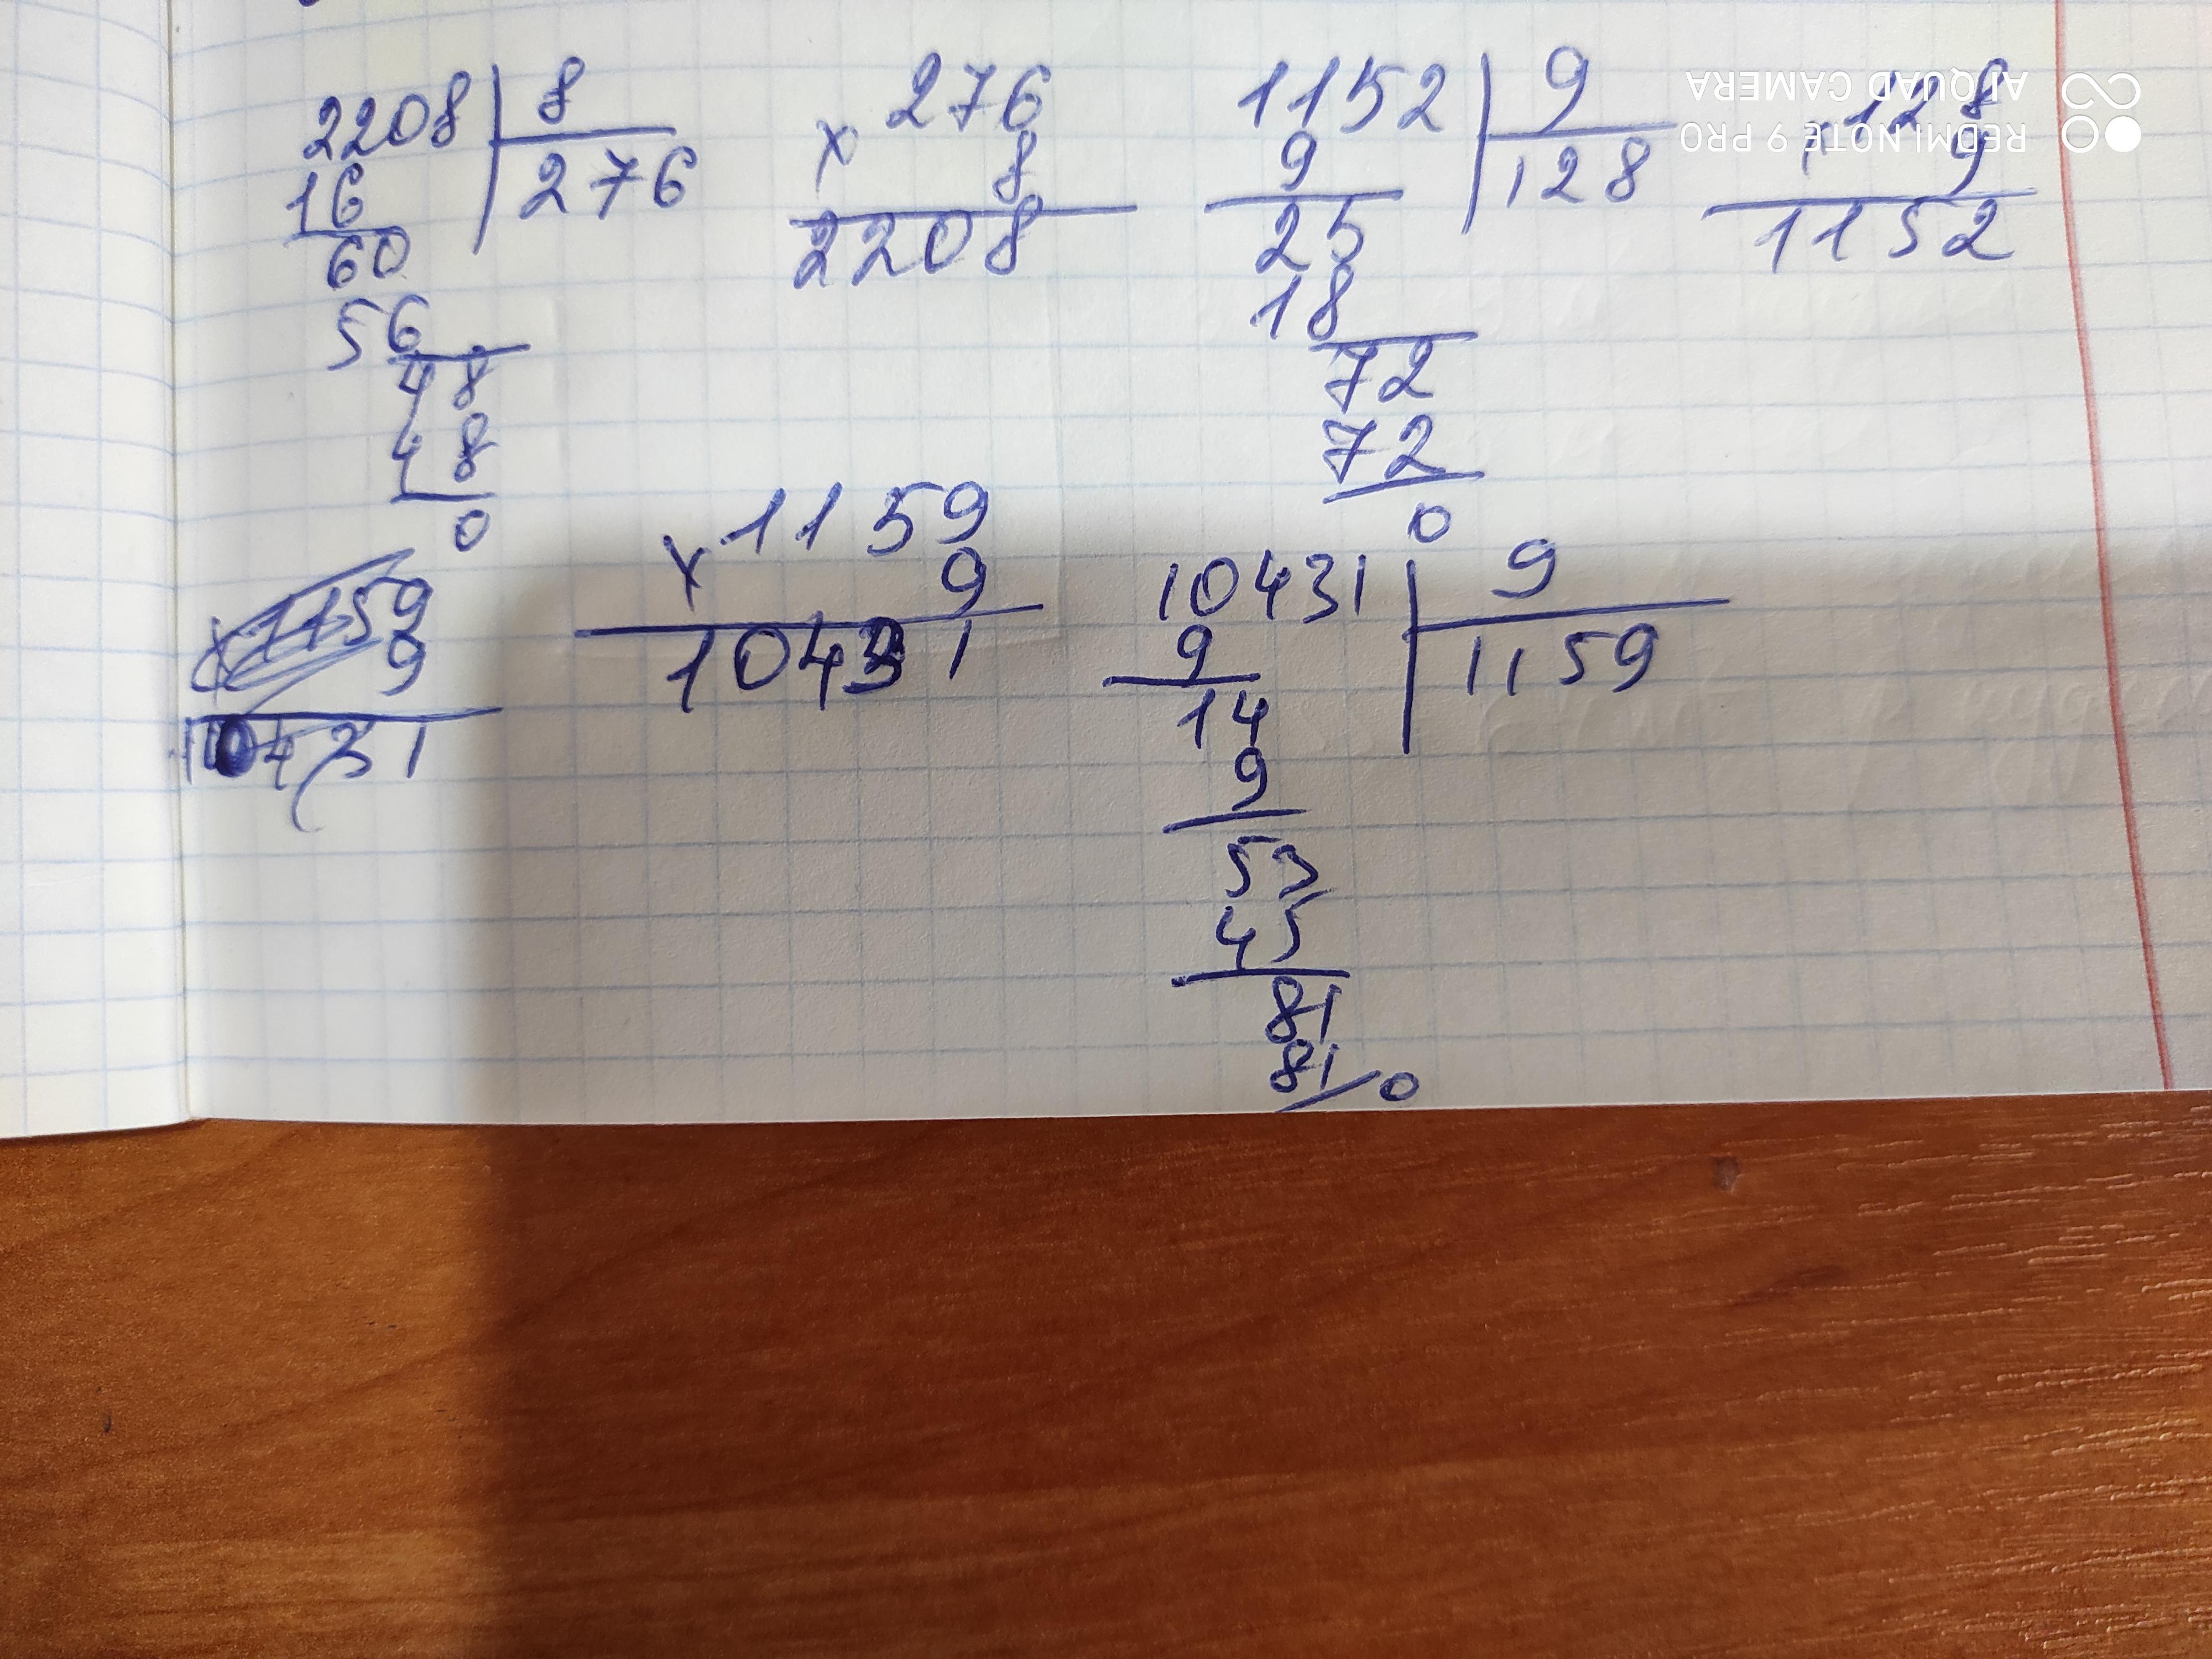 2208 | 8
16 | 276
60
56
48
48
0
× 276
8
2208
1152 | 9
9 | 128
25
18
72
72
0
× 128
9
1152
× 1159
9
10431
× 1159
9
10431
10431 | 9
9 | 1159
14
9
53
45
81
81
0
REDMI NOTE 9 PRO
AI QUAD CAMERA